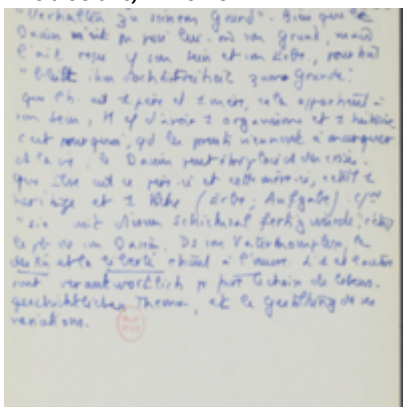 "Verhalten zu seinem Grund". Bien que le
Dasein n'ait pas posé lui-même son Grund, mais
l'ait reçu de son sein et son Erbe, pourtant
"bleibt ihm doch Freiheit zum Grunde:
que Ch. ait 1 père et 1 mère, cela appartient à
son Sein, il y d'avoir 1 organisme et 1 histoire
c'est pourquoi, qd les parents viennent à manquer
de la vie, le Dasein peut
que Ilse ait ce père-ci et cette mère-ci, c'est 1
héritage et 1 tâche (Erbe, Aufgabe). c/
"sie mit diesem Schicksal fertig würde", c'était
le pb de son Dasein. Ds son Vaterkomplex, le
destin et la liberté étaient à l'œuvre. L'1 et l'autre
sont verantwortlich pr le choix du lebens-
geschichtlichen Thema, et la Gestaltung de ses
variations.